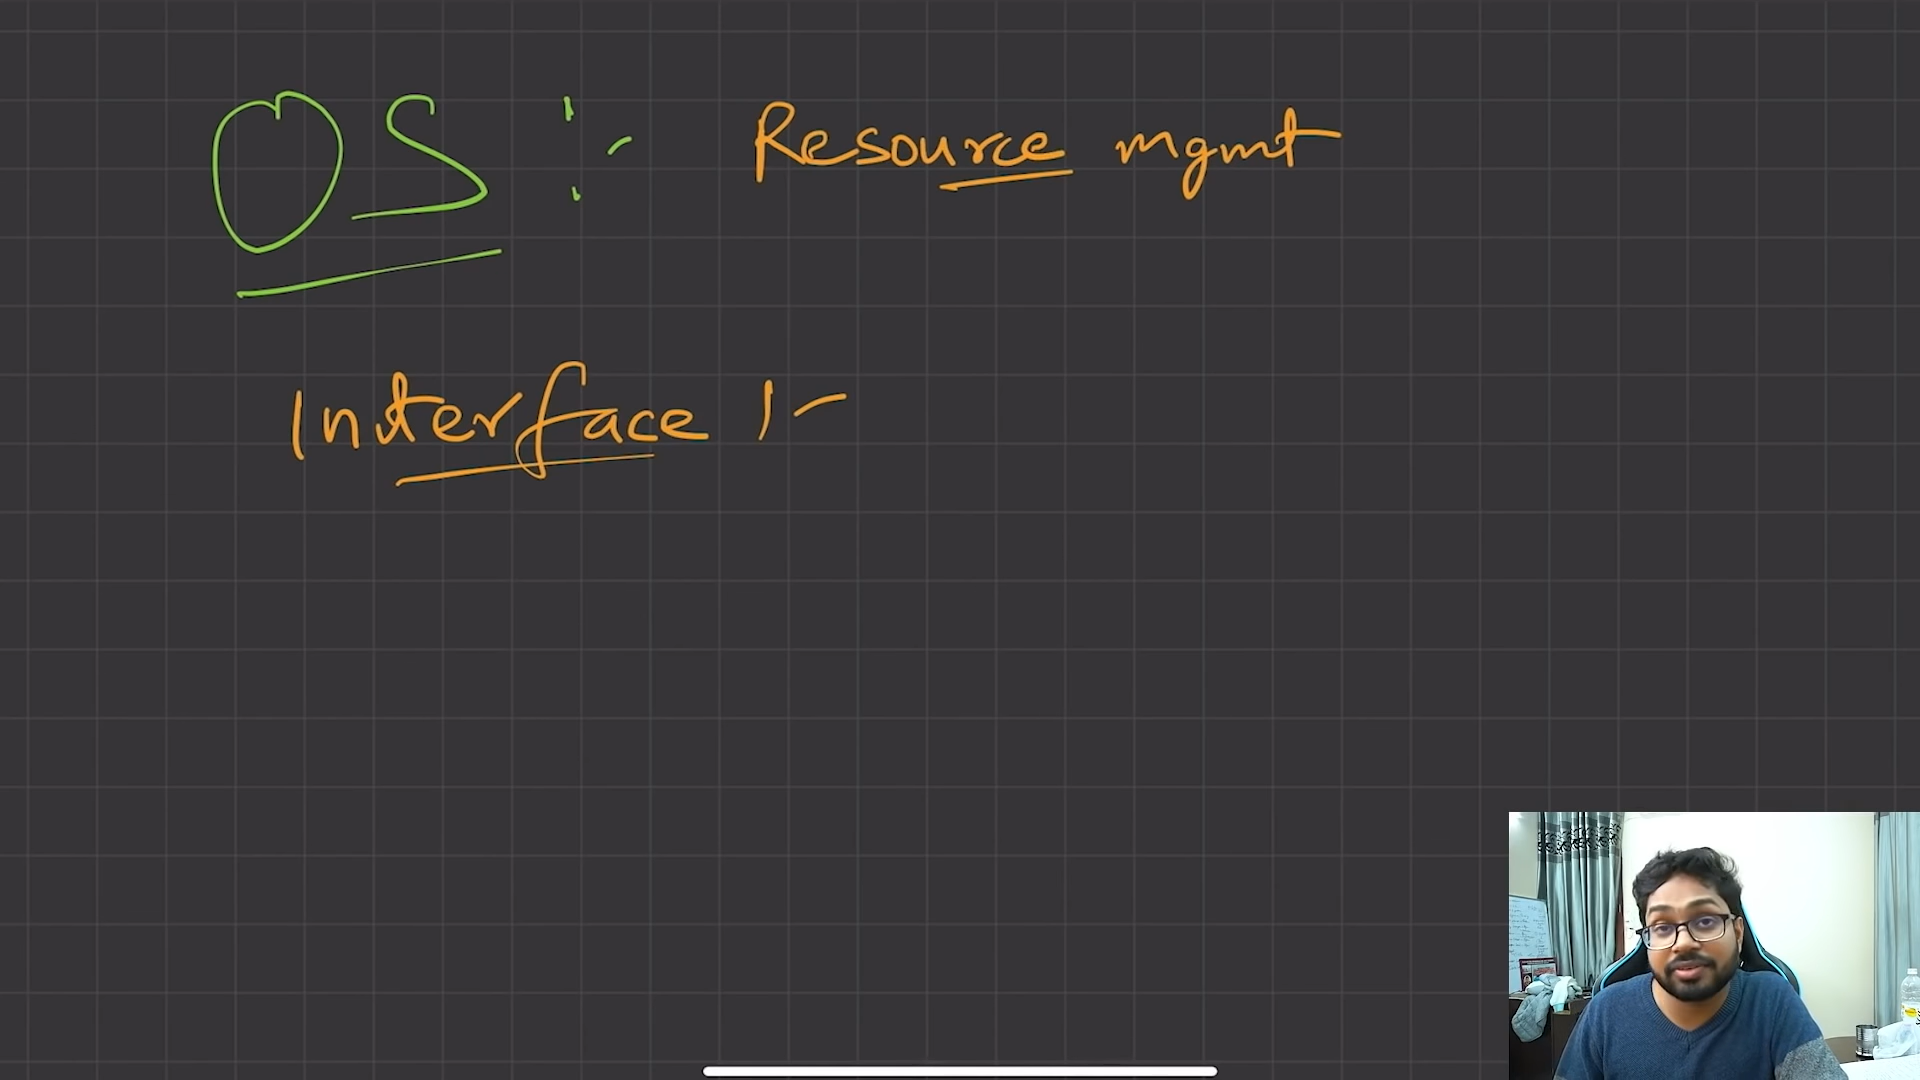 OS :- Resource mgmt
Interface :-